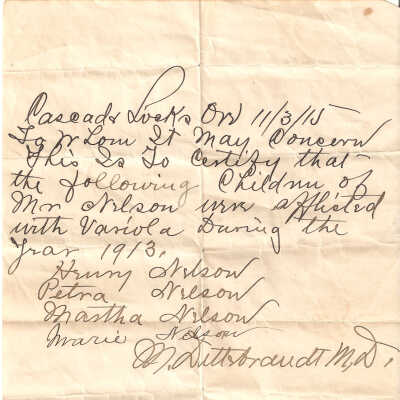 Cascade Locks Ore 11/3/15
To Whom It May Concern
This Is To Certify that
the following Children of
Mr Nelson were afflicted
with Variola During the
Year 1913.
Henry Nelson
Petra Nelson
Martha Nelson
Marie Nelson
Dittebrandt M.D.